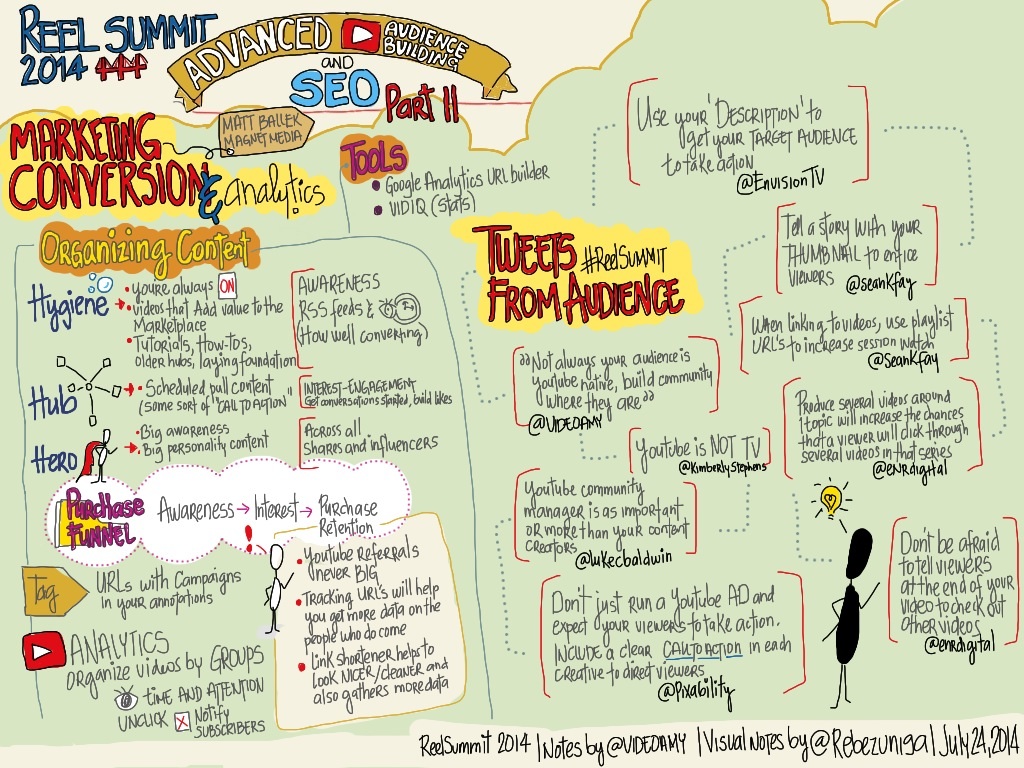 REEL SUMMIT
2014
ADVANCED
AUDIENCE
BUILDING
AND
SEO
Part II
MATT BALLEK
MAGNET MEDIA
MARKETING
CONVERSION
& analytics
TOOLS
• Google Analytics URL builder
• VIDIQ (Stats)
ORGANIZING CONTENT
Hygiene
• you're always ON
• videos that Add value to the
Marketplace
• Tutorials, How-Tos,
older hubs, laying foundation
AWARENESS
RSS feeds &
(How well converting)
Hub
• Scheduled pull content
(some sort of "CALL TO ACTION"
INTEREST-ENGAGEMENT
Get conversations started, build likes
Hero
• Big awareness
• Big personality content
Across all
Shares and influencers
PURCHASE
FUNNEL
Awareness → Interest → Purchase
Retention
!
• Youtube referrals
never BIG
• Tracking URL's will help
you get more data on the
people who do come
• Link shortener helps to
look NICER/cleaner and
also gathers more data
Tag
URLs with Campaigns
in your annotations
ANALYTICS
organize videos by GROUPS
TIME AND ATTENTION
UNCLICK X Notify
SUBSCRIBERS
TWEETS #ReelSummit
FROM AUDIENCE
Use your 'Description' to
get your TARGET AUDIENCE
to take action
@EnvisionTV
Tell a story with your
THUMBNAIL to entice
viewers
@seankfay
When linking to videos, use playlist
URL's to increase session watch
@Seankfay
"Not always your audience is
youtube native, build community
where they are"
@VIDEOAMY
Produce several videos around
1 topic will increase the chances
that a viewer will click through
several videos in that series
@enrdigital
Youtube is NOT TV
@KimberlyStephens
Youtube community
manager is as important
or more than your content
creators
@lukecbaldwin
Don't just run a Youtube AD and
expect your viewers to take action.
INCLUDE a clear CALL TO ACTION in each
creative to direct viewers
@Pixability
Don't be afraid
to tell viewers
at the end of your
video to check out
other videos
@enrdigital
ReelSummit 2014 | Notes by @VIDEOAMY | Visual Notes by @Rebezuniga | July 24, 2014